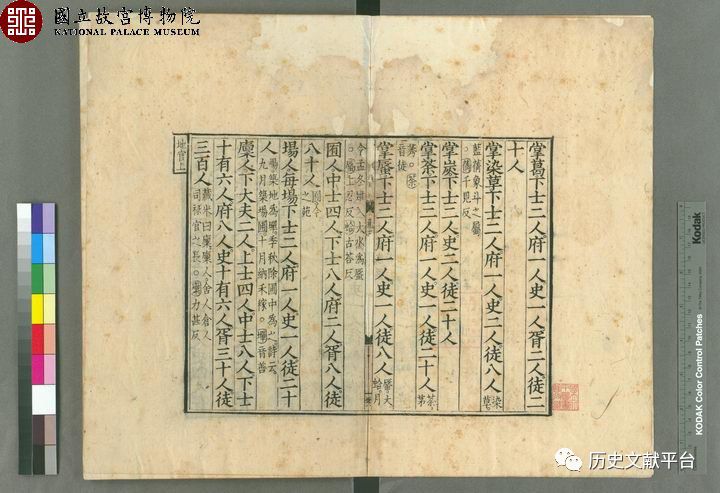 國立故宮博物院
NATIONAL PALACE MUSEUM
掌葛下士二人府一人史一人胥二人徒二
十人
掌染草下士二人府一人史二人徒八人染草
藍蒨象斗之屬
蒨千見反
掌炭下士二人史二人徒二十人
掌荼下士二人府一人史一人徒二十人荼茅
莠○荼
音徒
掌蜃下士二人府一人史一人徒八人蜃大蛤月
令孟冬雉入大水為蜃
○蜃上忍反蛤古荅反
囿人中士四人下士八人府二人胥八人徒
八十人囿今之苑
場人每場下士二人府一人史一人徒二十
人場築地為墠季秋除圃中為之詩云
九月築場圃十月納禾稼○墠音善
廩人下大夫二人上士四人中士八人下士
十有六人府八人史十有六人胥三十人徒
三百人藏米曰廩廩人舍人倉人
司祿官之長○廩力甚反
地官上
Kodak
KODAK Color Control Patches
历史文献平台